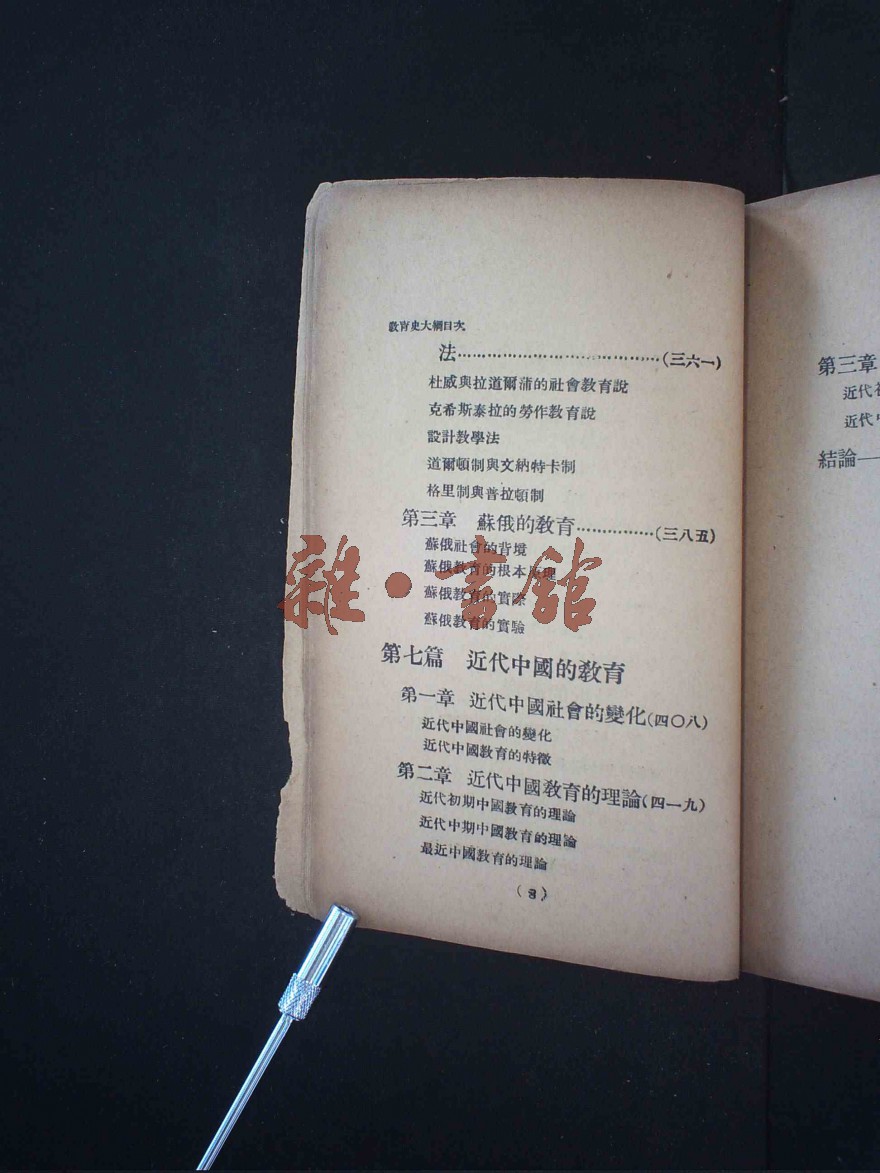 教育史大綱目次
法……………………………………(三六一)
杜威與拉道爾蒲的社會教育說
克希斯泰拉的勞作教育說
設計教學法
道爾頓制與文納特卡制
格里制與普拉頓制
第三章 蘇俄的教育……………(三八五)
蘇俄社會的背境
蘇俄教育的根本原理
蘇俄教育的實際
蘇俄教育的實驗
第七篇 近代中國的教育
第一章 近代中國社會的變化(四〇八)
近代中國社會的變化
近代中國教育的特徵
第二章 近代中國教育的理論(四一九)
近代初期中國教育的理論
近代中期中國教育的理論
最近中國教育的理論
(8)
第三章
近代
近代
結論—
雜·書館